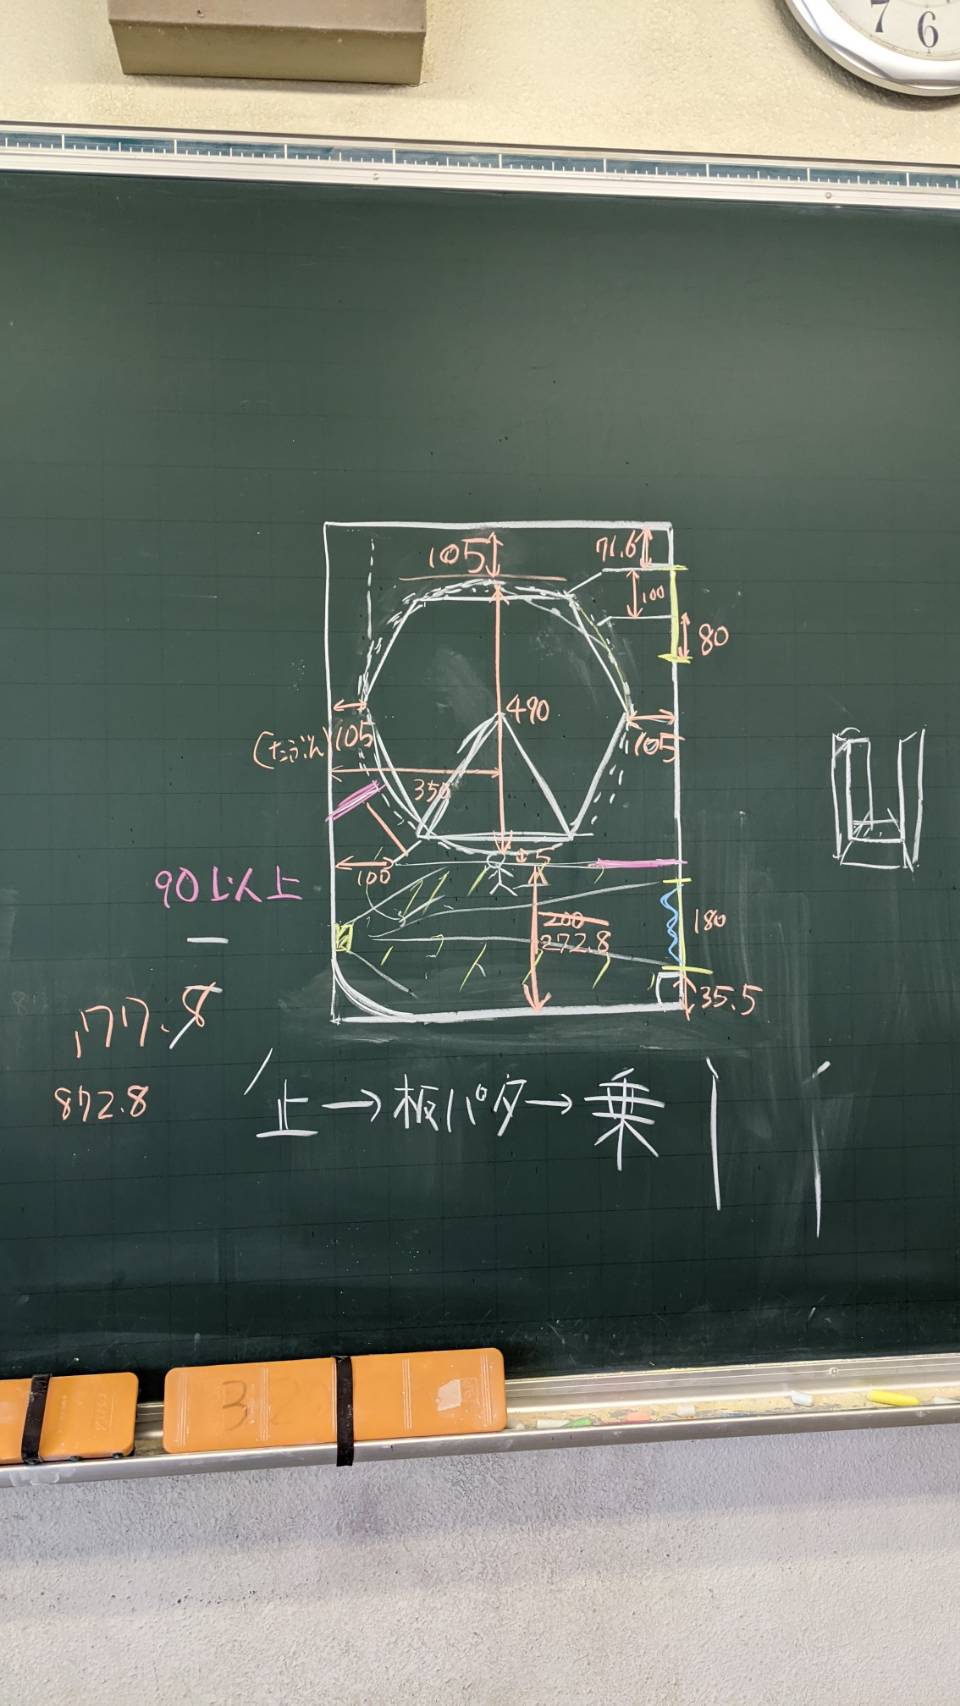 7 6
105
71.6
100
80
490
(たぶん) 105
105
350
5
100
90以上
200
272.8
180
177.8
35.5
872.8
止→板パタ→乗
3